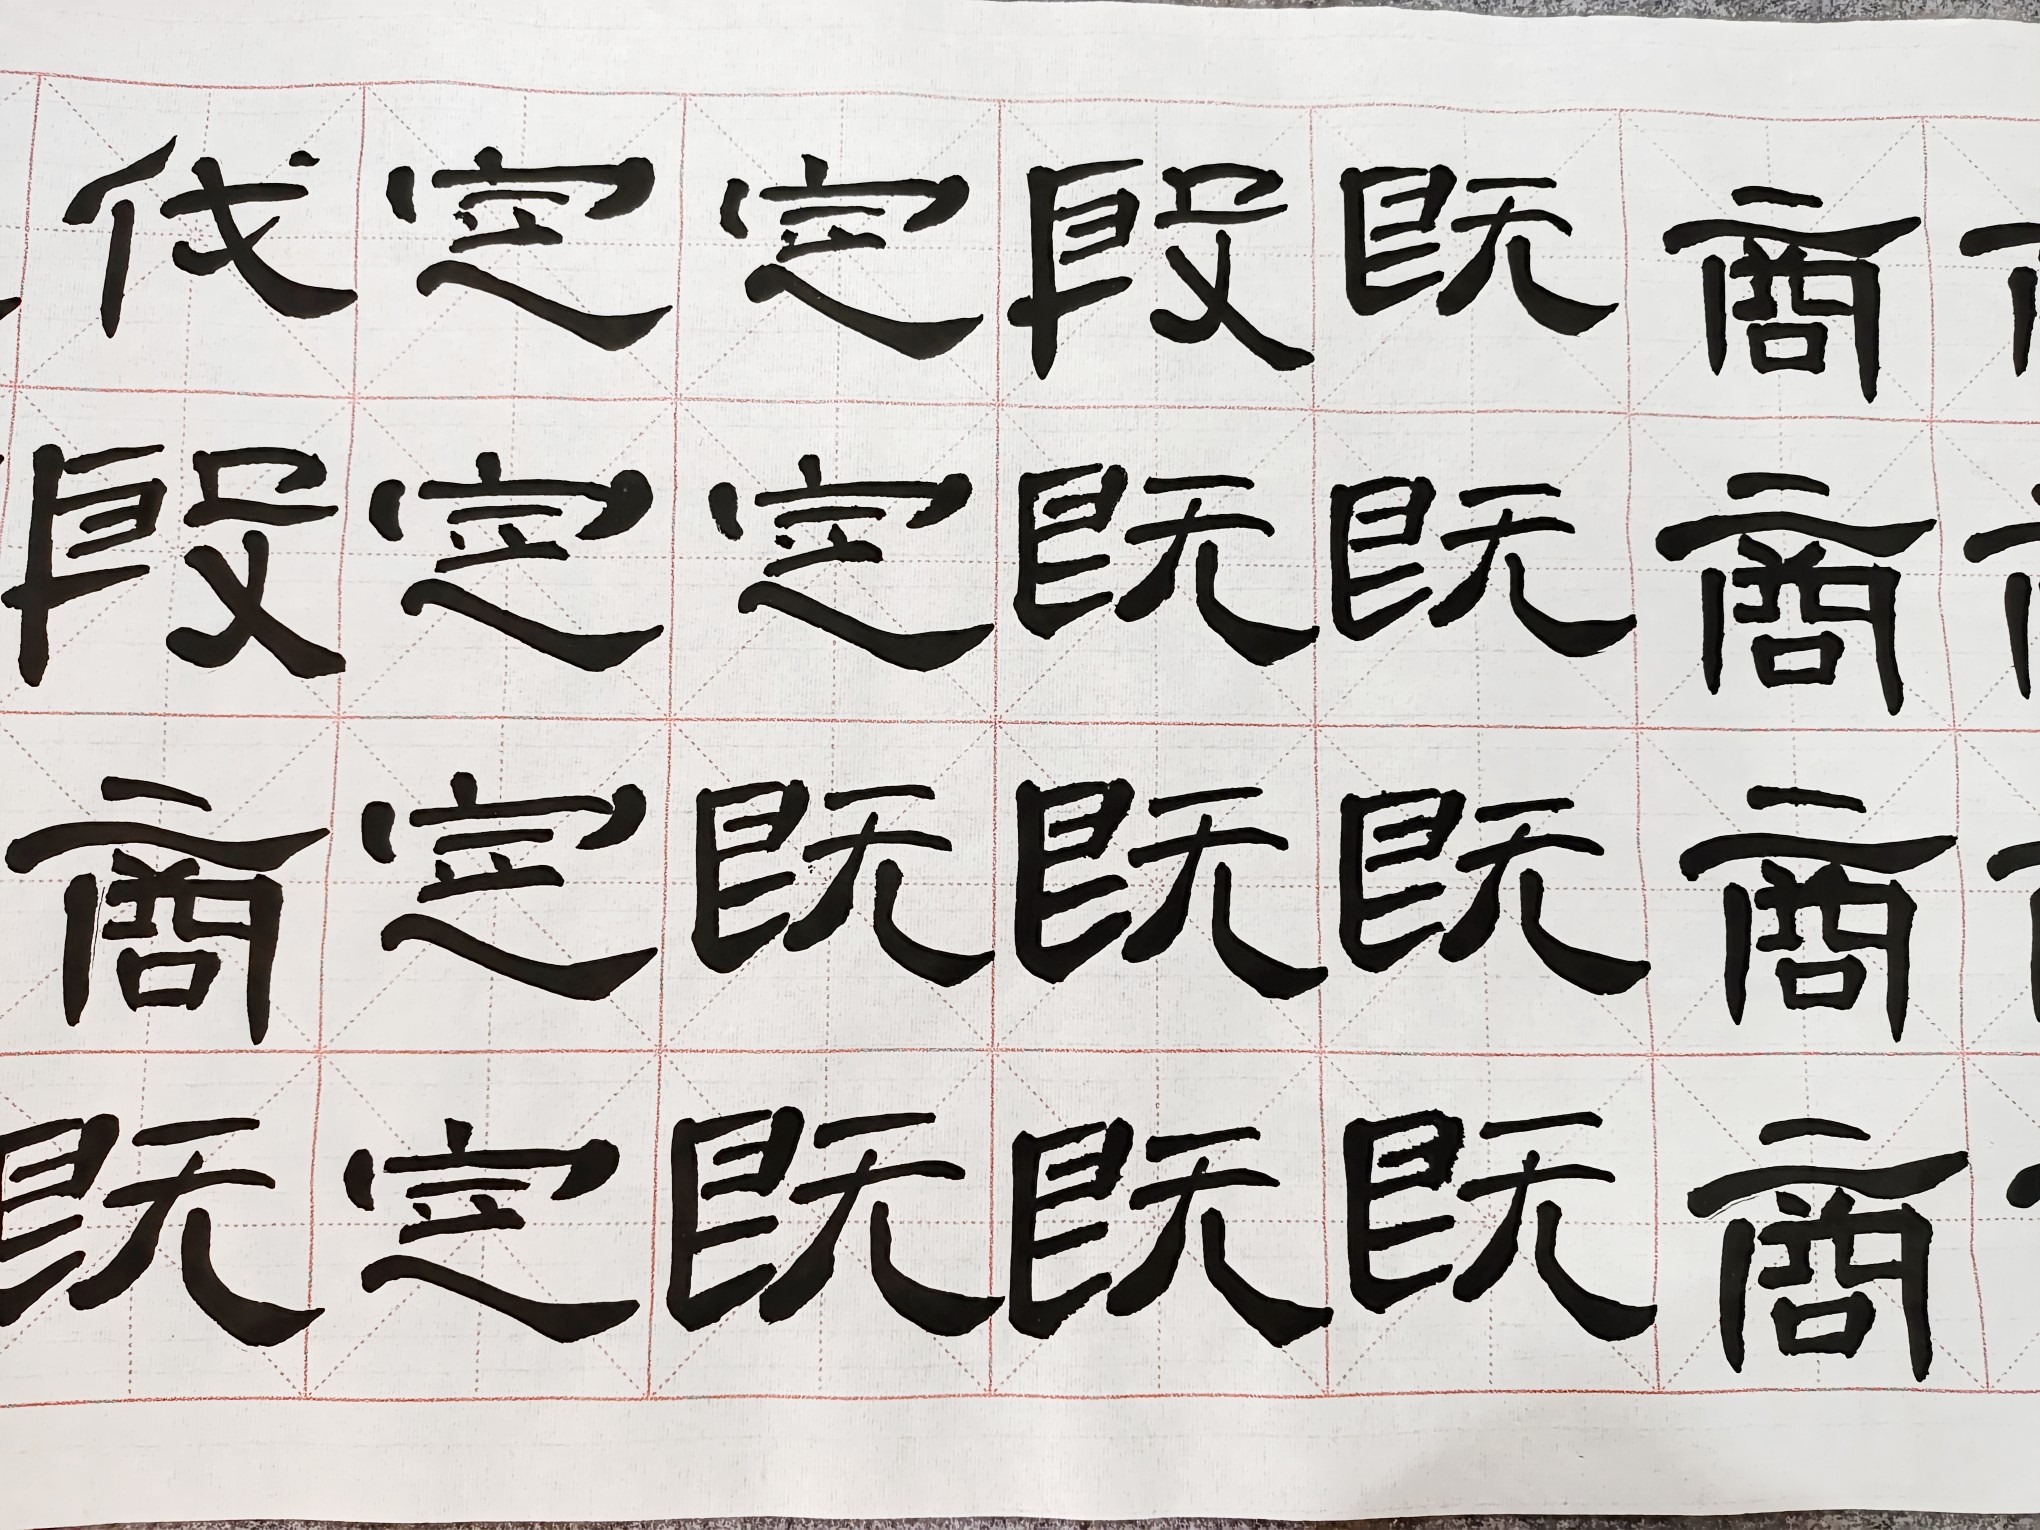 商商商商
既既既既
殷既既既
定定既既
定定定定
伐殷商既